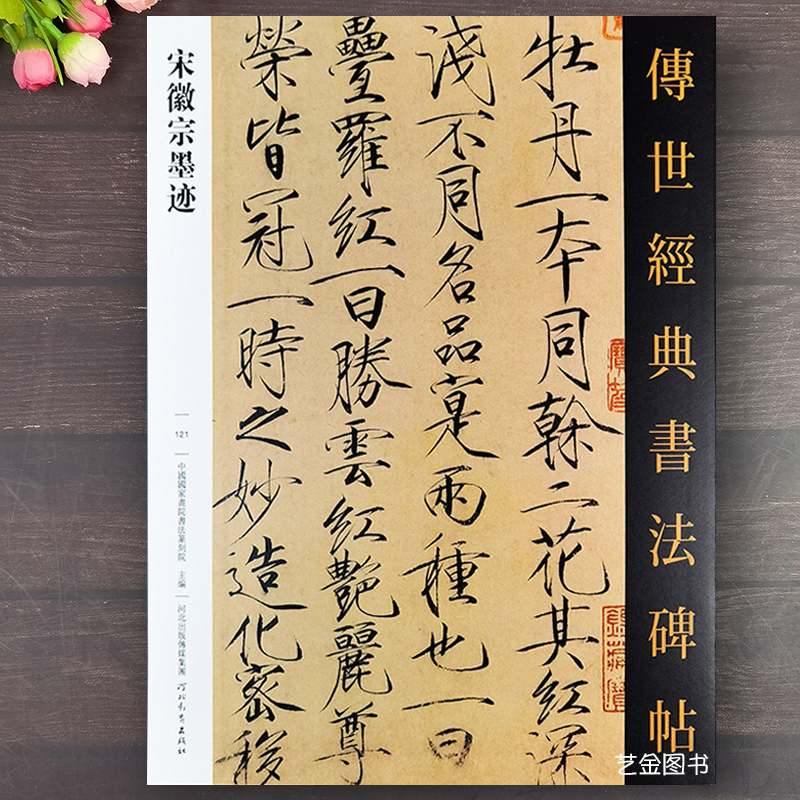 傳世經典書法碑帖
牡丹一本同榦二花其紅深
淺不同名品寔兩種也一曰
疊羅紅一曰勝雲紅艷麗尊
榮皆冠一時之妙造化密移
宋徽宗墨迹
121
中國國家畫院書法篆刻院 主编
河北出版傳媒集團
河北教育出版社
艺金图书